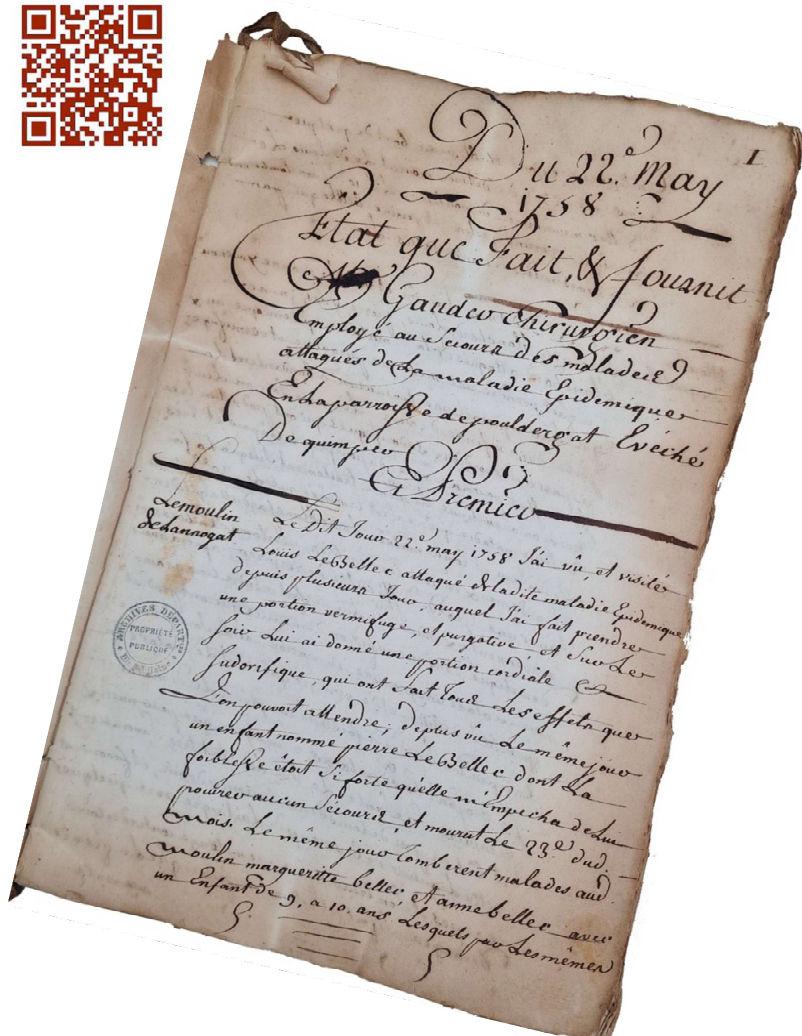 1
Du 22e. May
1758
Etat que Fait, & fournit
Gaudeo Chirurgien
Employé au Secours des malades
attaqués de La maladie Epidemique
En La parroisse de pouldergat Evéché
De quimper
Et Premier
Le moulin
de Lannogat
Le Dit Jour 22e. may 1758 J'ai vû, et visité
Louis Le Bellec attaqué de ladite maladie Epidemique
depuis plusieurs Jour, auquel J'ai fait prendre
une portion vermifuge, et purgative et Sur Le
soir Lui ai donné une portion cordiale &
Sudorifique, qui ont fait Tous Les effets que
L'on pouvoit attendre; depuis vû Le même jour
un enfant nommé pierre Le Bellec dont La
foiblesse étoit Si forte qu'elle m'Empecha de Lui
aucun Secours, et mourut Le 23e. dud.
mois. Le même jour Tomberent malades aud.
moulin margueritte bellec, et anne bellec avec
un Enfant de 9, a 10 ans, Lesquels par Les mêmes
ARCHIVES DEPART
PROPRIÉTÉ
PUBLIQUE